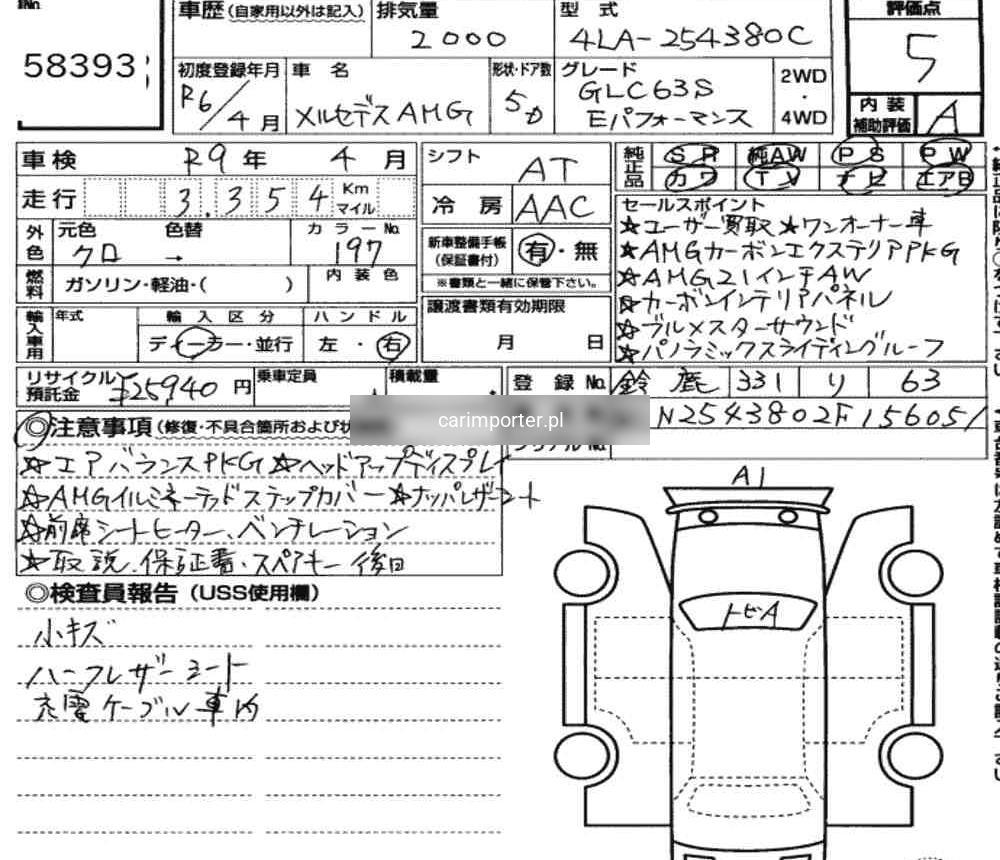 58393
車歴 (自家用以外は記入)
排気量
2000
型 式
4LA-254380C
評価点
5
初度登録年月
R6/4月
車 名
メルセデスAMG
形状・ドア数
5D
グレード
GLC63S
Eパフォーマンス
2WD
・
4WD
内 装
補助評価
A
車検 R9年 4月
走行 3,354 Km
マイル
外色
元色 色替
クロ →
カラーNo.
197
燃料
ガソリン・軽油・( )
内装色
輸入車用
年式
輸入区分
ディーラー・並行
ハンドル
左・右
シフト AT
冷房 AAC
新車整備手帳
(保証書付)
有・無
※書類と一緒に保管下さい。
譲渡書類有効期限
月 日
純正品
SR 純AW PS PW
カワ TV ナビ エアB
セールスポイント
☆ユーザー買取 ☆ワンオーナー車
☆AMGカーボンエクステリアPKG
☆AMG21インチAW
☆カーボンインテリアパネル
☆ブルメスターサウンド
☆パノラミックスライディングルーフ
リサイクル
預託金
¥25940円
乗車定員
積載量
登録No.
鈴鹿 331 り 63
carimporter.pl
N2543802F156051
◎注意事項
(修復・不具合箇所および
☆エアバランスPKG ☆ヘッドアップディスプレイ
☆AMGイルミネーテッドステップカバー ☆ナッパレザーシート
☆前席シートヒーター、ベンチレーション
☆取説、保証書・スペアキー後日
◎検査員報告 (USS使用欄)
小キズ
ハーフレザーシート
充電ケーブル車内
A1
トビA